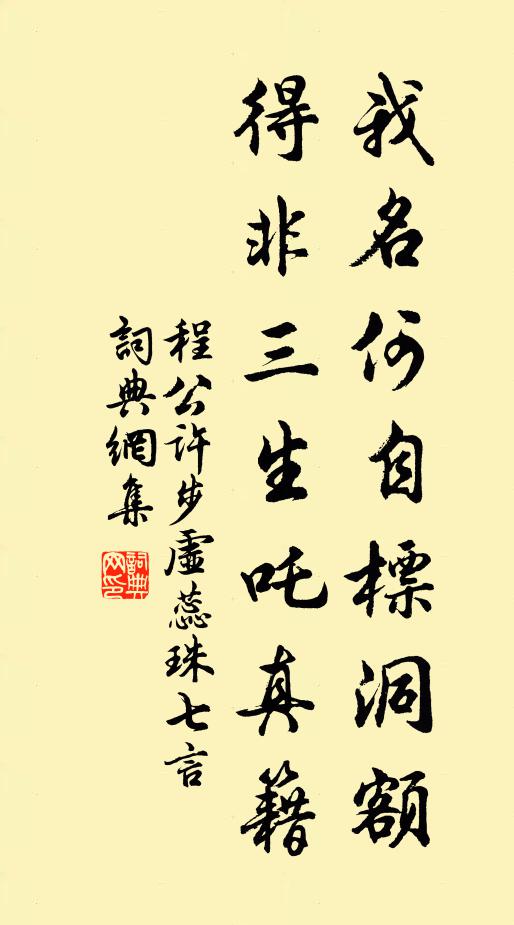 我名何自標洞額
得非三生吒真籍
程公許步虛蕊珠七言
詞典網集
詞典網印